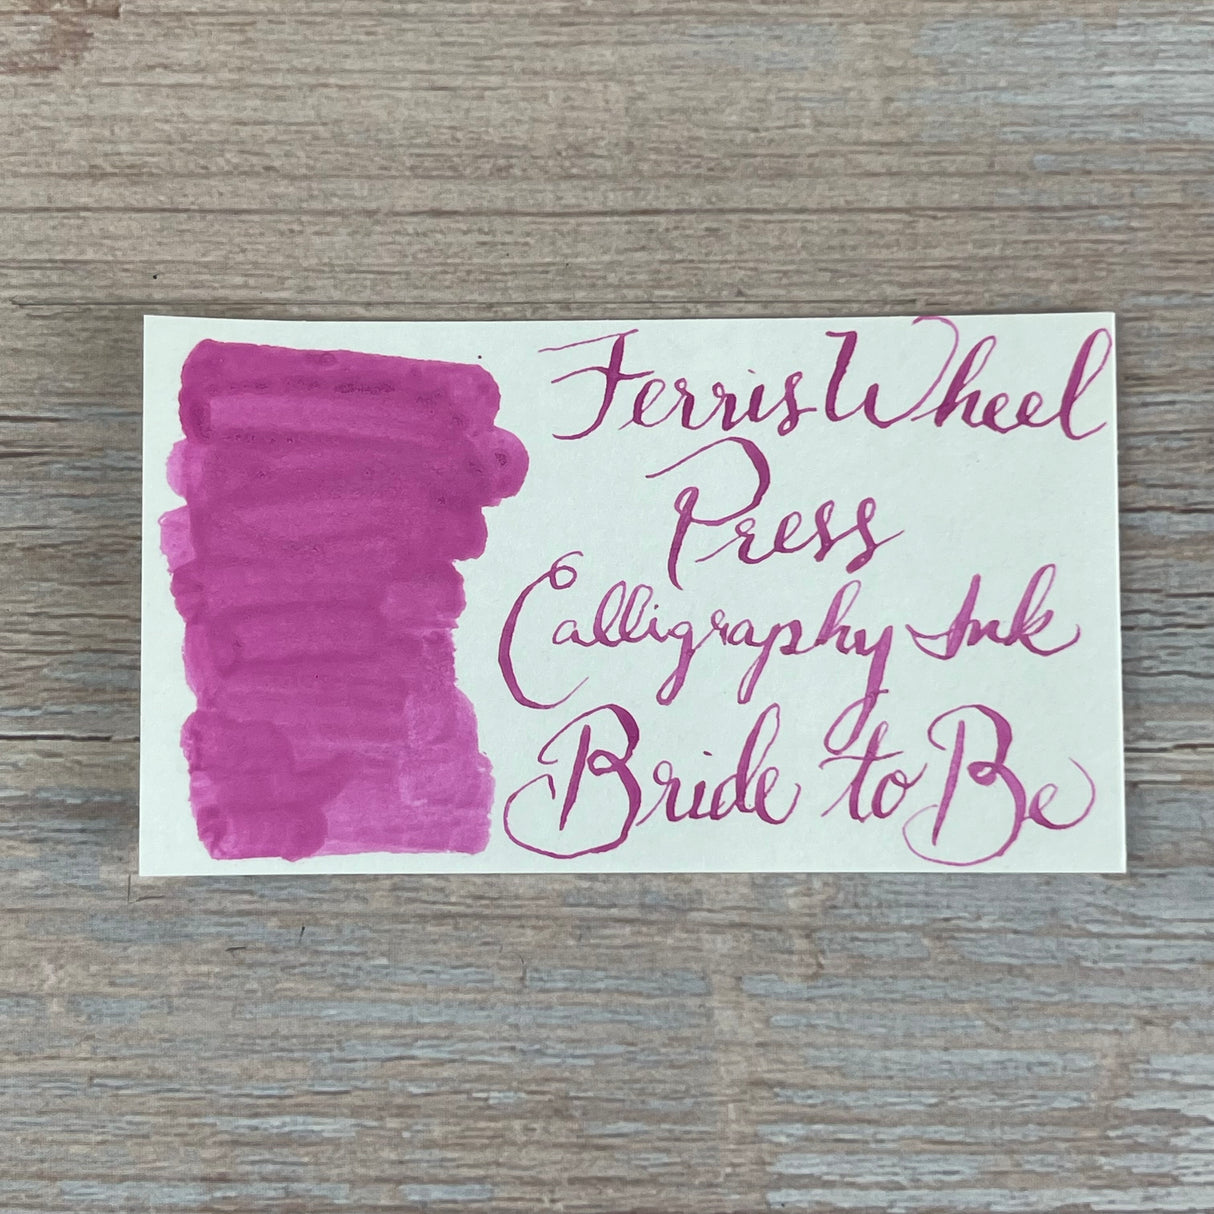 Ferris Wheel
Press
Calligraphy Ink
Bride to Be